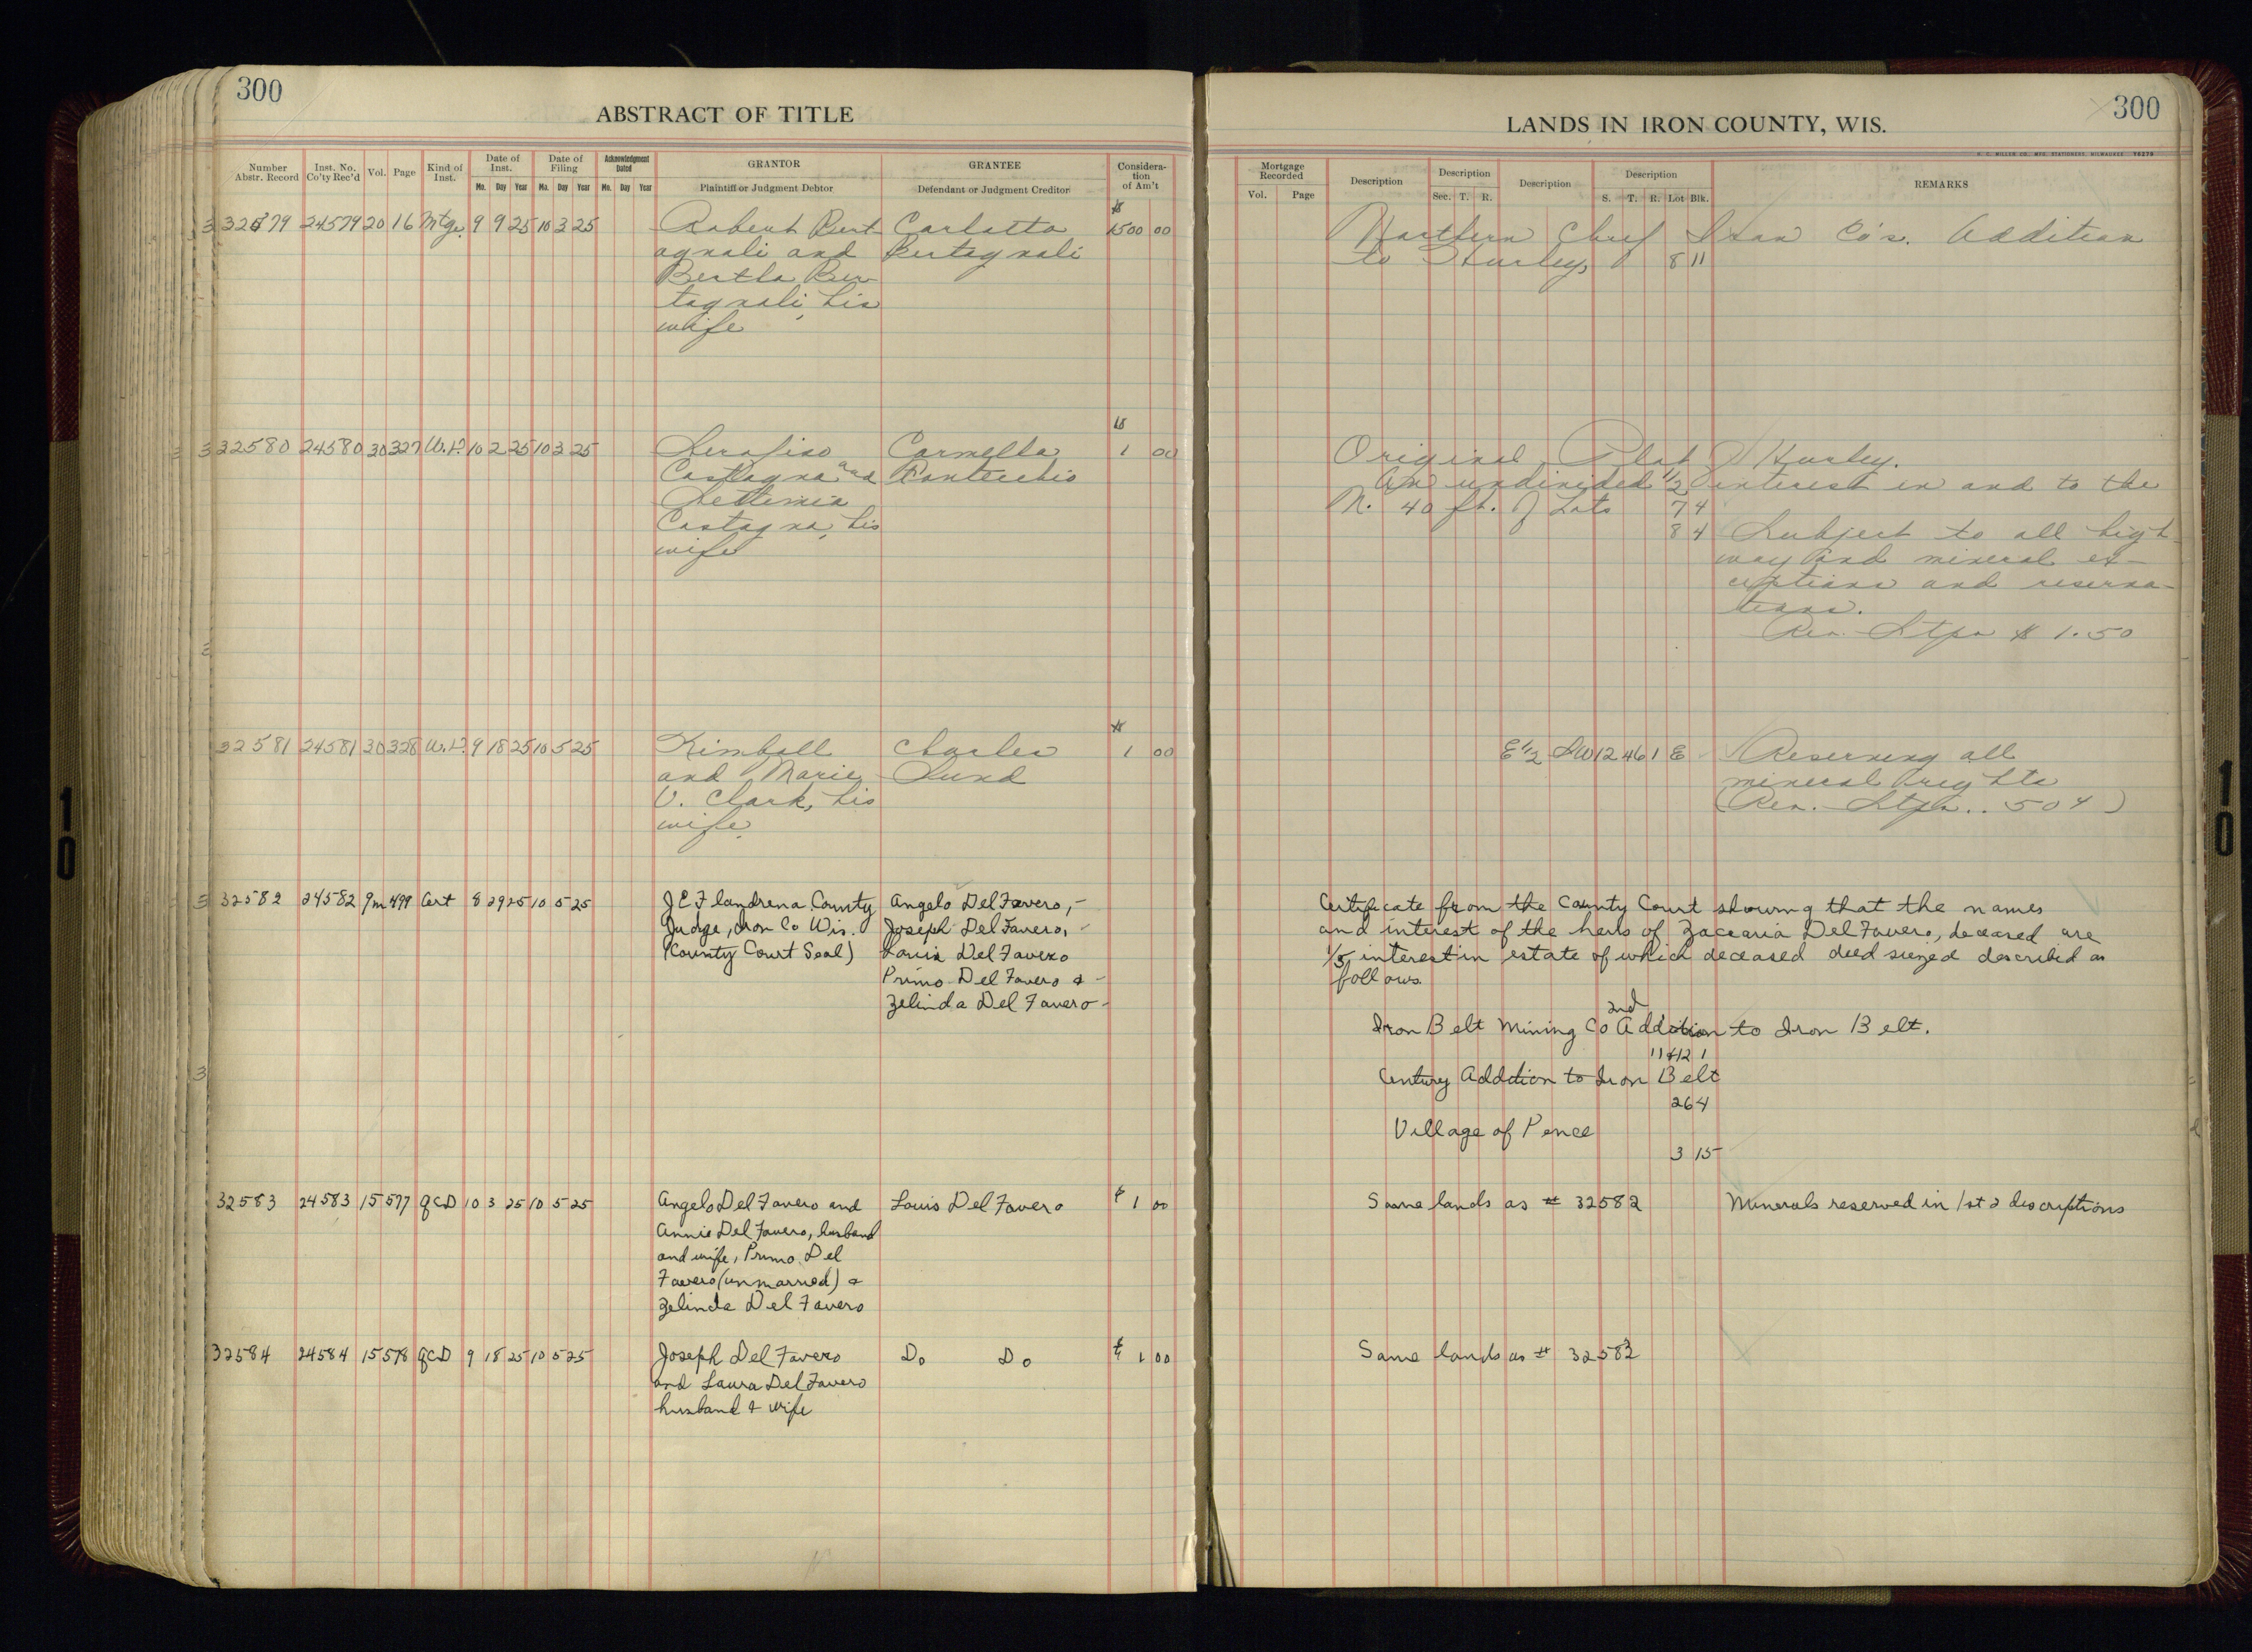 300
ABSTRACT OF TITLE
Number Abstr. Record
Inst. No. Co'ty Rec'd
Vol.
Page
Kind of Inst.
Date of Inst.
Mo. Day Year
Date of Filing
Mo. Day Year
Acknowledgment Dated
Mo. Day Year
GRANTOR
Plaintiff or Judgment Debtor
GRANTEE
Defendant or Judgment Creditor
Considera-
tion
of Am't
32579 24579 20 16 Mtg. 9 9 25 10 3 25 Robert Bert Carlotta $ 1500 00
agnali and Bertagnali
Bertha Ber
tagnali, his
wife
32580 24580 30 327 W.D. 10 2 25 10 3 25 Serafino Carmella $ 1 00
Castagna and
Settimia
Castagna, his
wife
32581 24581 30 328 W.D. 9 18 25 10 5 25 Kimball Charles $ 1 00
and Marie Lund
V. Clark, his
wife
32582 24582 9m 499 Cert 8 29 25 10 5 25 J E Flandrena County Angelo Del Favero,-
Judge, Iron Co Wis. Joseph Del Favero,-
(County Court Seal) Louis Del Favero
Primo Del Favero & -
Zelinda Del Favero -
32583 24583 15 577 QCD 10 3 25 10 5 25 Angelo Del Favero and Louis Del Favero $ 1 00
Annie Del Favero, husband
and wife, Primo Del
Favero (unmarried) &
Zelinda Del Favero
32584 24584 15 578 QCD 9 18 25 10 5 25 Joseph Del Favero Do Do $ 1 00
and Laura Del Favero
husband & wife
300
LANDS IN IRON COUNTY, WIS.
H. C. MILLER CO. MFG. STATIONERS, MILWAUKEE Y6276
Mortgage Recorded
Vol. Page
Description
Description
Sec. T. R.
Description
Description
S. T. R. Lot Blk.
REMARKS
Northern Chief Iron Co's. Addition
to Hurley, 8 11
Original Plat of Hurley.
An undivided 1/2 interest in and to the
N. 40 ft. of Lots 7 4
8 4 Subject to all high
way and mineral ex-
ceptions and reserva-
tions.
Rev. Stps $ 1.50
E 1/2 SW 12 46 1 E Reserving all
mineral rights
(Rev. Stps. . 50 ¢)
Certificate from the County Court showing that the names
and interest of the heirs of Zacearia Del Favero, deceased are
1/5 interest in estate of which deceased died siezed described as
follows.
Iron Belt Mining Co 2nd Addition to Iron Belt.
11 & 12 1
Century Addition to Iron Belt
26 4
Village of Pence
3 15
Same lands as # 32582 Minerals reserved in 1st 2 descriptions
Same lands as # 32582